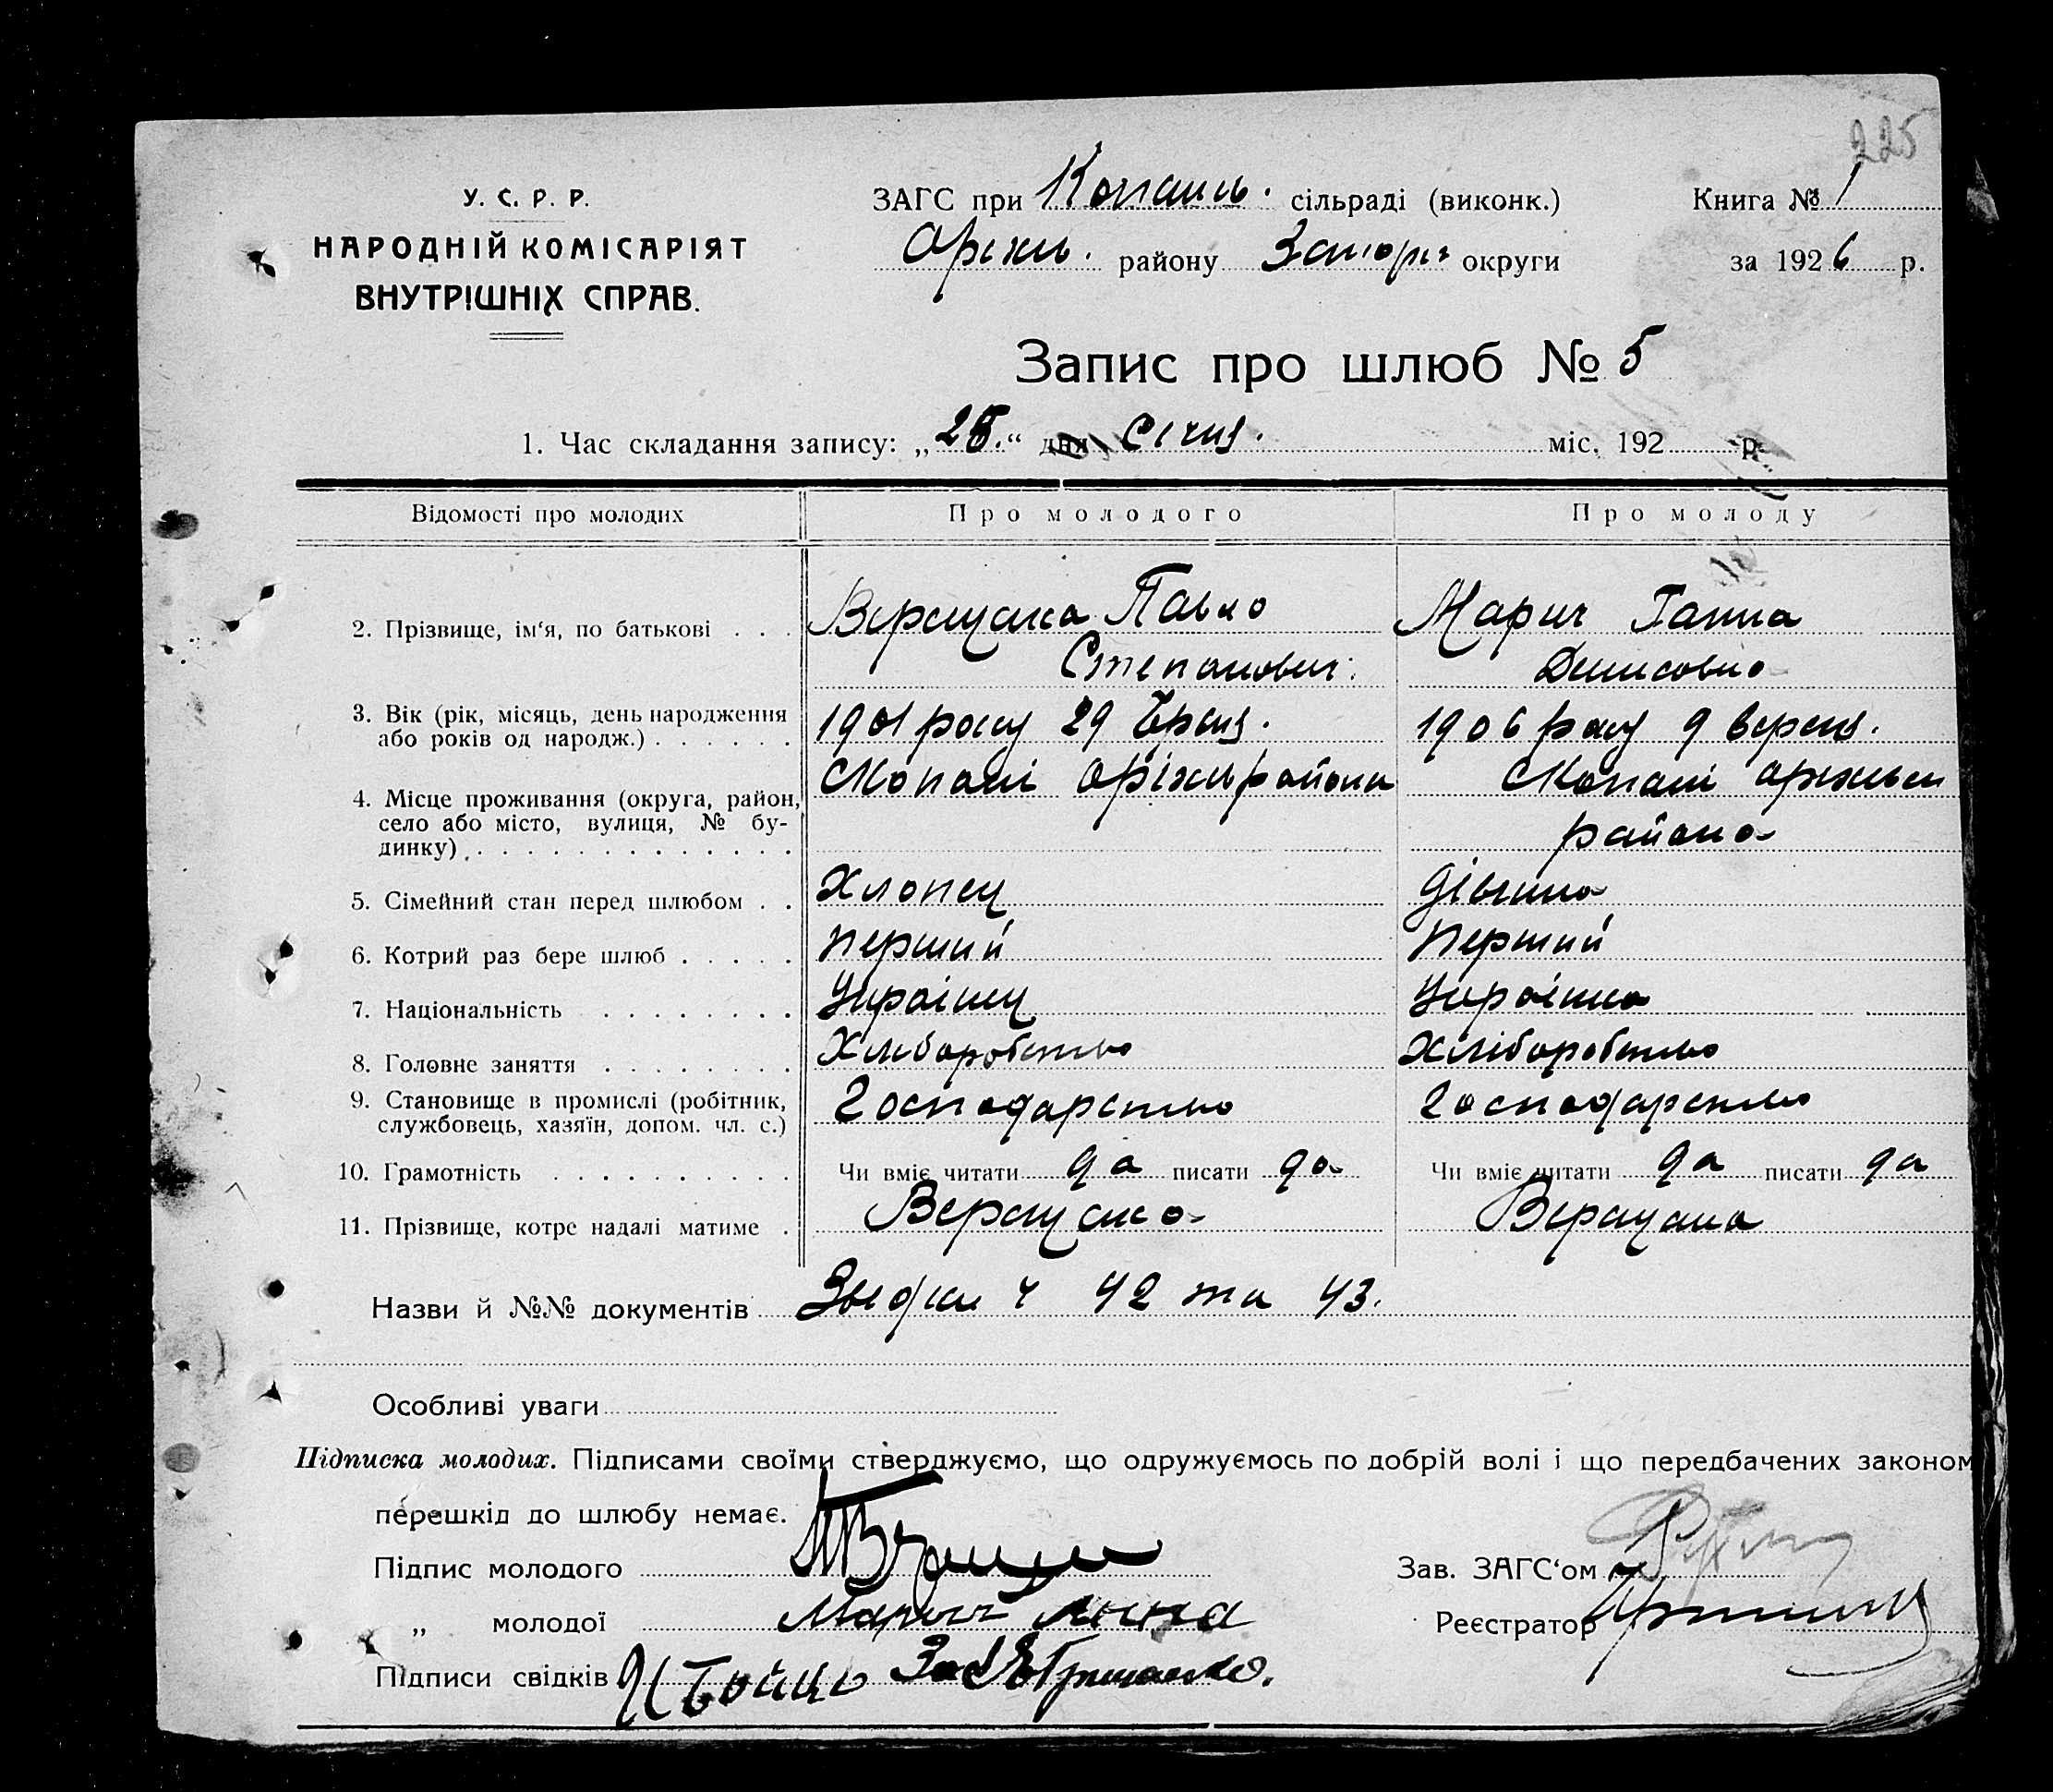 225
У. С. Р. Р.
НАРОДНІЙ КОМІСАРІЯТ
ВНУТРІШНІХ СПРАВ.
ЗАГС при Копань. сільраді (виконк.)
Оріхів. району Запоріз округи
Книга № 1
за 1926 р.
Запис про шлюб № 5
1. Час складання запису: „25.“ дня січня. міс. 192 р.
Відомості про молодих Про молодого Про молоду
2. Прізвище, ім‘я, по батькові . . . Верещака Павло Марич Ганна
Степанович. Денисовна
3. Вік (рік, місяць, день народження
або років од народж.) . . . . . . 1901 року 29 1906 року 9 версня.
4. Місце проживання (округа, район,
село або місто, вулиця, № бу-
динку) . . . . . . . . . . . . . Скопані оріхів района Скопані
района
5. Сімейний стан перед шлюбом . . Хлопец дівчина
6. Котрий раз бере шлюб . . . . . перший перший
7. Національність . . . . . . . . Українец Українка
8. Головне заняття . . . . . . . . Хліборобство хліборобство
9. Становище в промислі (робітник,
службовець, хазяїн, допом. чл. с.) Господарство господарство
10. Грамотність . . . . . . . . . . Чи вміє читати да писати да Чи вміє читати да писати да
11. Прізвище, котре надалі матиме . Верещака Верещака
Назви й №№ документів 42 та 43.
Особливі уваги
Підписка молодих. Підписами своїми стверджуємо, що одружуємось по добрій волі і що передбачених законом
перешкід до шлюбу немає.
Підпис молодого
Зав. ЗАГС‘ом
„ молодої Марич Анна
Реєстратор
Підписи свідків